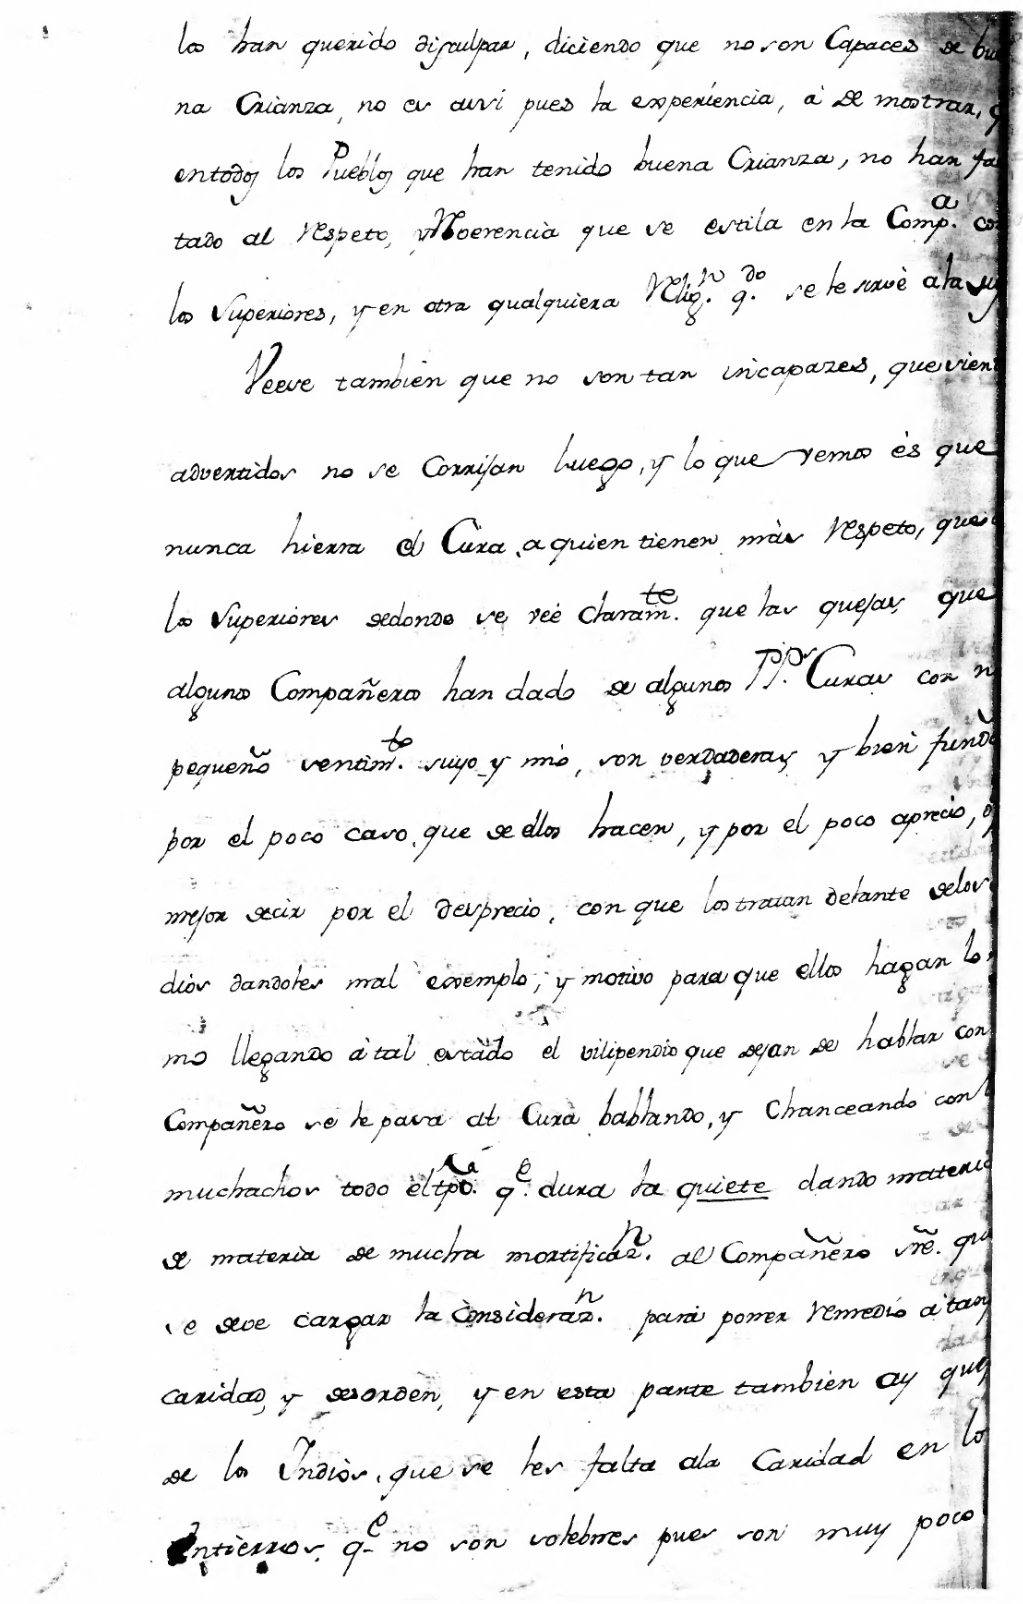 los han querido disculpar, diciendo que no son Capaces de bue
na Crianza, no es assi pues la experiencia, à de mostrar, q
entodos los Pueblos que han tenido buena Crianza, no han fa
tado al respeto, y Reverencia que se estila en la Comp.ª con
los Superiores, y en otra qualquiera Relig.n q.do se le sirve a la
Veese tambien que no son tan incapazes, que vien
advertidos no se Corrijan luego, y lo que vemos és que
nunca hierra el Cura, a quien tienen màs Respeto, que
los Superiores dedonde se veé claram.te que las quejas, que
algunos Compañeros han dado de algunos PP.s Curas con n
pequeño sentim.to suyo y mio, son verdaderas y bien fund
por el poco caso, que de ellos hacen, y por el poco aprecio, o
mejor decir por el desprecio, con que los tratan delante delos
dios dandoles mal exemplo, y motivo para que ellos hagan lo
mo llegando à tal estàdo el vilipendio que dejan de hablar con
Compañero se le pasa al Cura hablando, y Chanceando con
muchachos todo èl tpo. q.e dura la quiete dando materia
de materia de mucha mortificaz.n al Compañero sre. que
se deve cargar la Consideraz.n para poner remedio à tan
caridad, y desorden, y en esta parte tambien ay que
de los Indios, que se les falta ala Caridad en lo
Entierros, q.e no son solebnes pues son muy poco